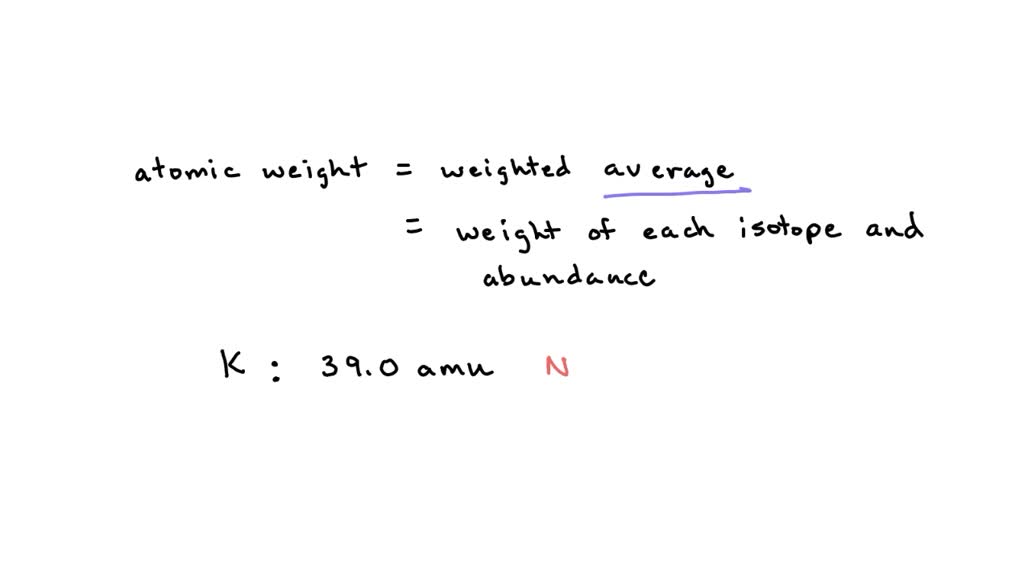 atomic weight = weighted average
= weight of each isotope and
abundance
K : 39.0 amu N